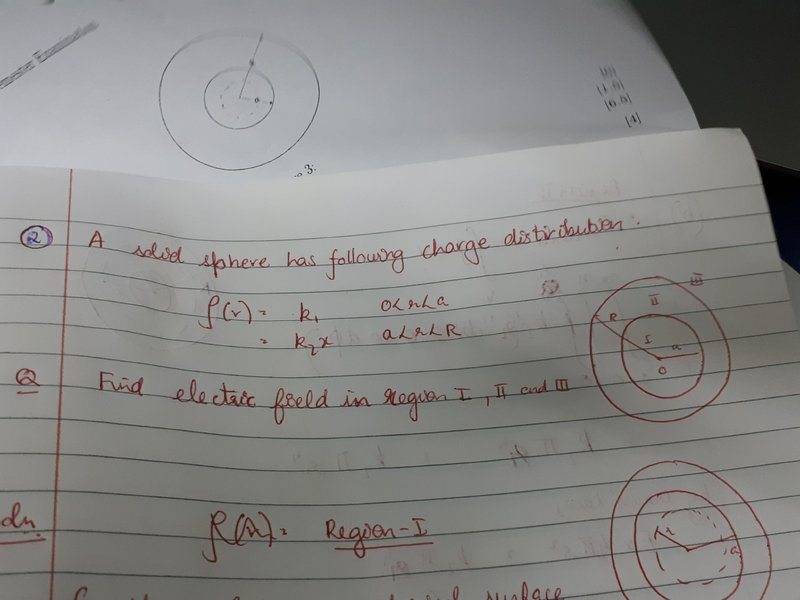 3.
② A solid sphere has following charge distiribution :
ρ(r) = k₁ 0<r<a
= k₂r a<r<R
Q Find electric field in region I, II and III
III
II
R
I
a
O
ρ(r) = Region-I
r
a
surface